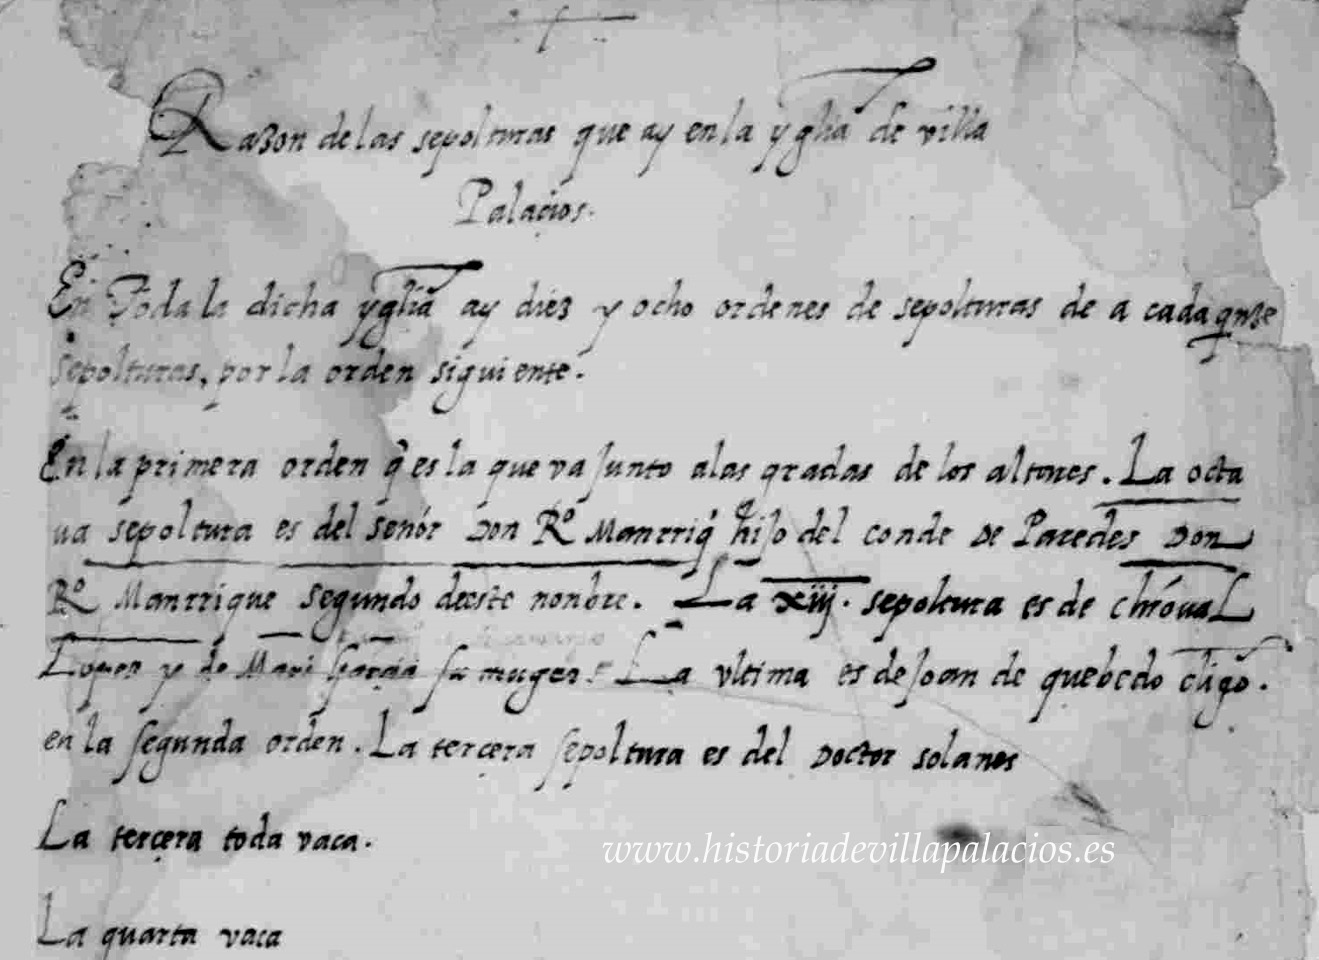 Razon de las sepolturas que ay en la ygłia de villa
Palaçios.
En Toda la dicha ygłia ay diez y ocho ordenes de sepolturas de a cada qnze
sepolturas, por la orden siguiente.
En la primera orden q̃ es la que va junto a las gradas de los altares. La octa
ua sepoltura es del señor Don Rº Manrriq̃ hijo del conde De Paredes Don
Rº Manrrique segundo deeste nonbre. La xiij. sepoltura es de chr̃oual
Lopez y de Mari Garçia su muger. La vltima es de Joan de quebedo cłigo.
en la segunda orden. La terçera sepoltura es del Doctor solanes
La terçera toda vaca.
www.historiadevillapalacios.es
La quarta vaca